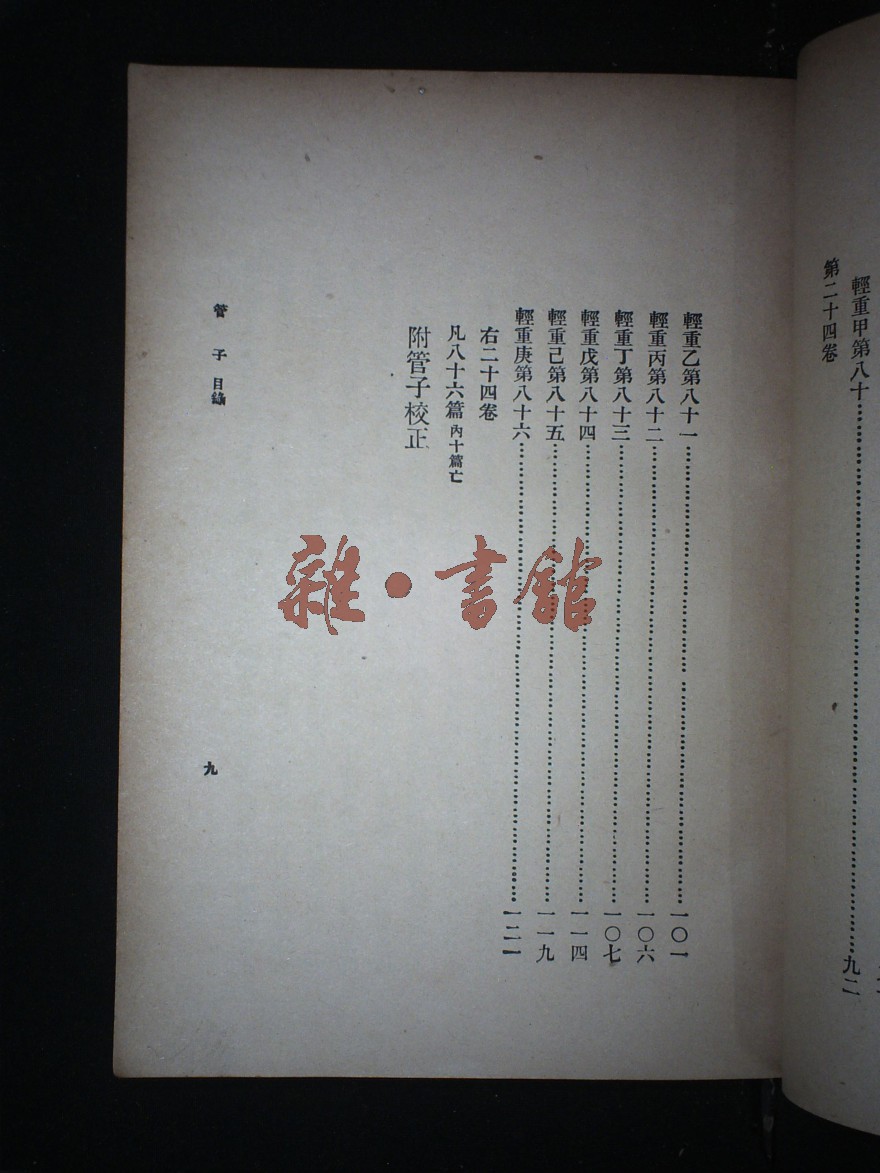 第二十四卷
輕重甲第八十……九二
輕重乙第八十一……一〇一
輕重丙第八十二……一〇六
輕重丁第八十三……一〇七
輕重戊第八十四……一一四
輕重己第八十五……一一九
輕重庚第八十六……一二一
右二十四卷
凡八十六篇 內十篇亡
附管子校正
管子 目錄
九
雜·書館